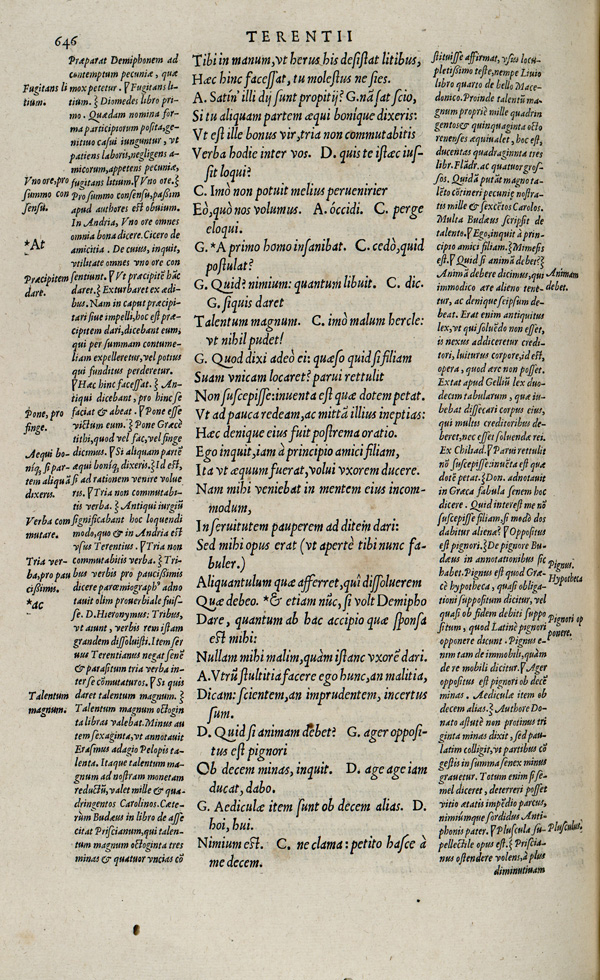 646
TERENTII
Præparat Demiphonem ad
contemptum pecuniæ, quæ
mox petetur. ¶ Fugitans li-
tium. ξ Diomedes libro pri-
mo. Quædam nomina for-
ma participiorum posita, ge-
nitiuo casui iunguntur, vt
patiens laboris, negligens a-
micorum, appetens pecuniæ,
fugitans litium. ¶ Vno ore. ξ
Pro summo consensu, passim
apud authores est obuium.
In Andria, Vno ore omnes
omnia bona dicere. Cicero de
amicitia. De cuius, inquit,
vtilitate omnes vno ore con
sentiunt. ¶ Vt præcipitē hāc
daret. ξ Exturbaret ex ædi-
bus. Nam in caput præcipi-
tari siue impelli, hoc est præ-
cipitem dari, dicebant eum,
qui per summam contume-
liam expelleretur, vel potius
qui funditus perderetur.
¶ Hæc hinc facessat. ξ An-
tiqui dicebant, pro hinc se
faciat & abeat. ¶ Pone esse
victum eum. ξ Pone Græcè
τίθι, quod vel fac, vel finge
dicimus. ¶ Si aliquam partē
æqui boniq́, dixeris. ξ Id est,
si ad rationem venire volue
ris. ¶ Tria non commutabi-
tis verba. ξ Antiqui iurgiū
significabant hoc loquendi
modo, quo & in Andria est
vsus Terentius. ¶ Tria non
commutabitis verba. ξ Tri-
bus verbis pro paucissimis
dicere parœmiograph⁹ adno
tauit olim prouerbiale fuis-
se. D. Hieronymus: Tribus,
vt aiunt, verbis rem istam
grandem dissoluisti. Item ser
uus Terentianus negat senē
& parasitum tria verba in-
ter se cōmutaturos. ¶ Si quis
daret talentum magnum. ξ
Talentum magnum octogin
ta libras valebat. Minus au
tem sexaginta, vt annotauit
Erasmus adagio Pelopis ta-
lenta. Itaque talentum ma-
gnum ad nostram monetam
reductū, valet mille & qua-
dringentos Carolinos. Cæte-
rùm Budæus in libro de asse
citat Priscianum, qui talen-
tum magnum octoginta tres
minas & quatuor vncias cō
Fugitans li
tium.
Vno ore, pro
summo con
sensu.
*At
Præcipitem
dare.
Pone, pro
finge.
Aequi bo-
niq́, si par-
tem aliquā
dixeris.
Verba com
mutare.
Tria ver-
ba, pro pau
cissimis.
*ac
Talentum
magnum.
Tibi in manum, vt herus his desistat litibus,
Hæc hinc facessat, tu molestus ne sies.
A. Satin' illi dij sunt propitij? G. nā sat scio,
Si tu aliquam partem æqui bonique dixeris:
Vt est ille bonus vir, tria non commutabitis
Verba hodie inter vos. D. quis te istæc ius-
sit loqui?
C. Imò non potuit melius peruenirier
Eò, quò nos volumus. A. óccidi. C. perge
eloqui.
G. *A primo homo insanibat. C. cedò, quid
postulat?
G. Quid? nimium: quantum libuit. C. dic.
G. siquis daret
Talentum magnum. C. imò malum hercle:
vt nihil pudet!
G. Quod dixi adeò ei: quæso quid si filiam
Suam vnicam locaret? parui rettulit
Non suscepisse: inuenta est quæ dotem petat.
Vt ad pauca redeam, ac mittā illius ineptias:
Hæc denique eius fuit postrema oratio.
Ego inquit, iam à principio amici filiam,
Ita vt æquum fuerat, volui vxorem ducere.
Nam mihi veniebat in mentem eius incom-
modum,
In seruitutem pauperem ad ditem dari:
Sed mihi opus erat (vt apertè tibi nunc fa-
buler.)
Aliquantulum quæ afferret, quî dissoluerem
Quæ debeo. *& etiam nūc, si volt Demipho
Dare, quantum ab hac accipio quæ spōsa
est mihi:
Nullam mihi malim, quàm istanc vxorē dari.
A. Vtrū stultitia facere ego hunc, an malitia,
Dicam: scientem, an imprudentem, incertus
sum.
D. Quid si animam debet? G. ager opposi-
tus est pignori
Ob decem minas, inquit. D. age age iam
ducat, dabo.
G. Aediculæ item sunt ob decem alias. D.
hoi, hui.
Nimium est. C. ne clama: petito hasce à
me decem.
stituisse affirmat, vsus locu-
pletissimo teste, nempe Liuio
libro quarto de bello Mace-
donico. Proinde talentū ma-
gnum propriè mille quadrin
gentos & quinquaginta octo
renenses æquiualet, hoc est,
ducentas quadraginnta tres
libr. Flādr. ac quatuor gros-
sos. Quidā putāt magno ta-
lēto cōtineri pecuniæ nostra-
tis mille & sexcētos Carolos.
Multa Budæus scripsit de
talento. ¶ Ego, inquit à prin-
cipio amici filiam. ξ Mimesis
est. ¶ Quid si animā debet? ξ
Animā debere dicimus, qui
immodico ære alieno tene-
tur, ac denique seipsum de-
bet. Erat enim antiquitus
lex, vt qui soluēdo non esset,
is nexus addiceretur credi-
tori, luiturus corpore, id est,
opera, quod ære non posset.
Extat apud Gelliū lex duo-
decim tabularum, quæ iu-
bebat dissecari corpus eius,
qui multis creditoribus de-
beret, nec esset soluendæ rei.
Ex Chiliad. ¶ Parui rettulit
nō suscepisse: inuēta est quæ
dotē petat. ξ Don. adnotauit
in Græca fabula senem hoc
dicere. Quid interest me nō
suscepisse filiam, si modò dos
dabitur aliena? ¶ Oppositus
est pignori. ξ De pignore Bu-
dæus in annotationibus sic
habet. Pignus est quod Græ-
cè hypotheca, quasi obliga-
tioni suppositum dicitur, vel
quasi ob fidem debiti suppo
situm, quod Latinè pignori
opponere dicunt. Pignus e-
nim tam de immobili, quàm
de re mobili dicitur. ¶ Ager
oppositus est pignori ob decē
minas. Aediculæ item ob
decem alias. ξ Authore Do-
nato astutè non protinus tri
ginta minas dixit, sed pau-
latim colligit, vt partibus cō
gestis in summa senex minus
grauetur. Totum enim si se-
mel diceret, deterreri posset
vitio ætatis impēdio parcus,
nimiumque sordidus Anti-
phonis pater. ¶ Pluscula su-
pellectile opus est. ξ Priscia-
nus ostendere volens, à plus
diminutiuam
Animam
debet.
Pignus.
Hypotheca
Pignori op
ponere.
Plusculus.